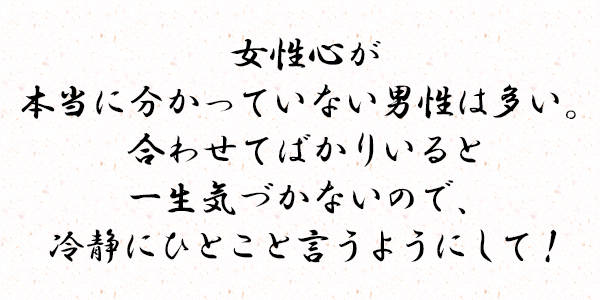 女性心が
本当に分かっていない男性は多い。
合わせてばかりいると
一生気づかないので、
冷静にひとこと言うようにして！